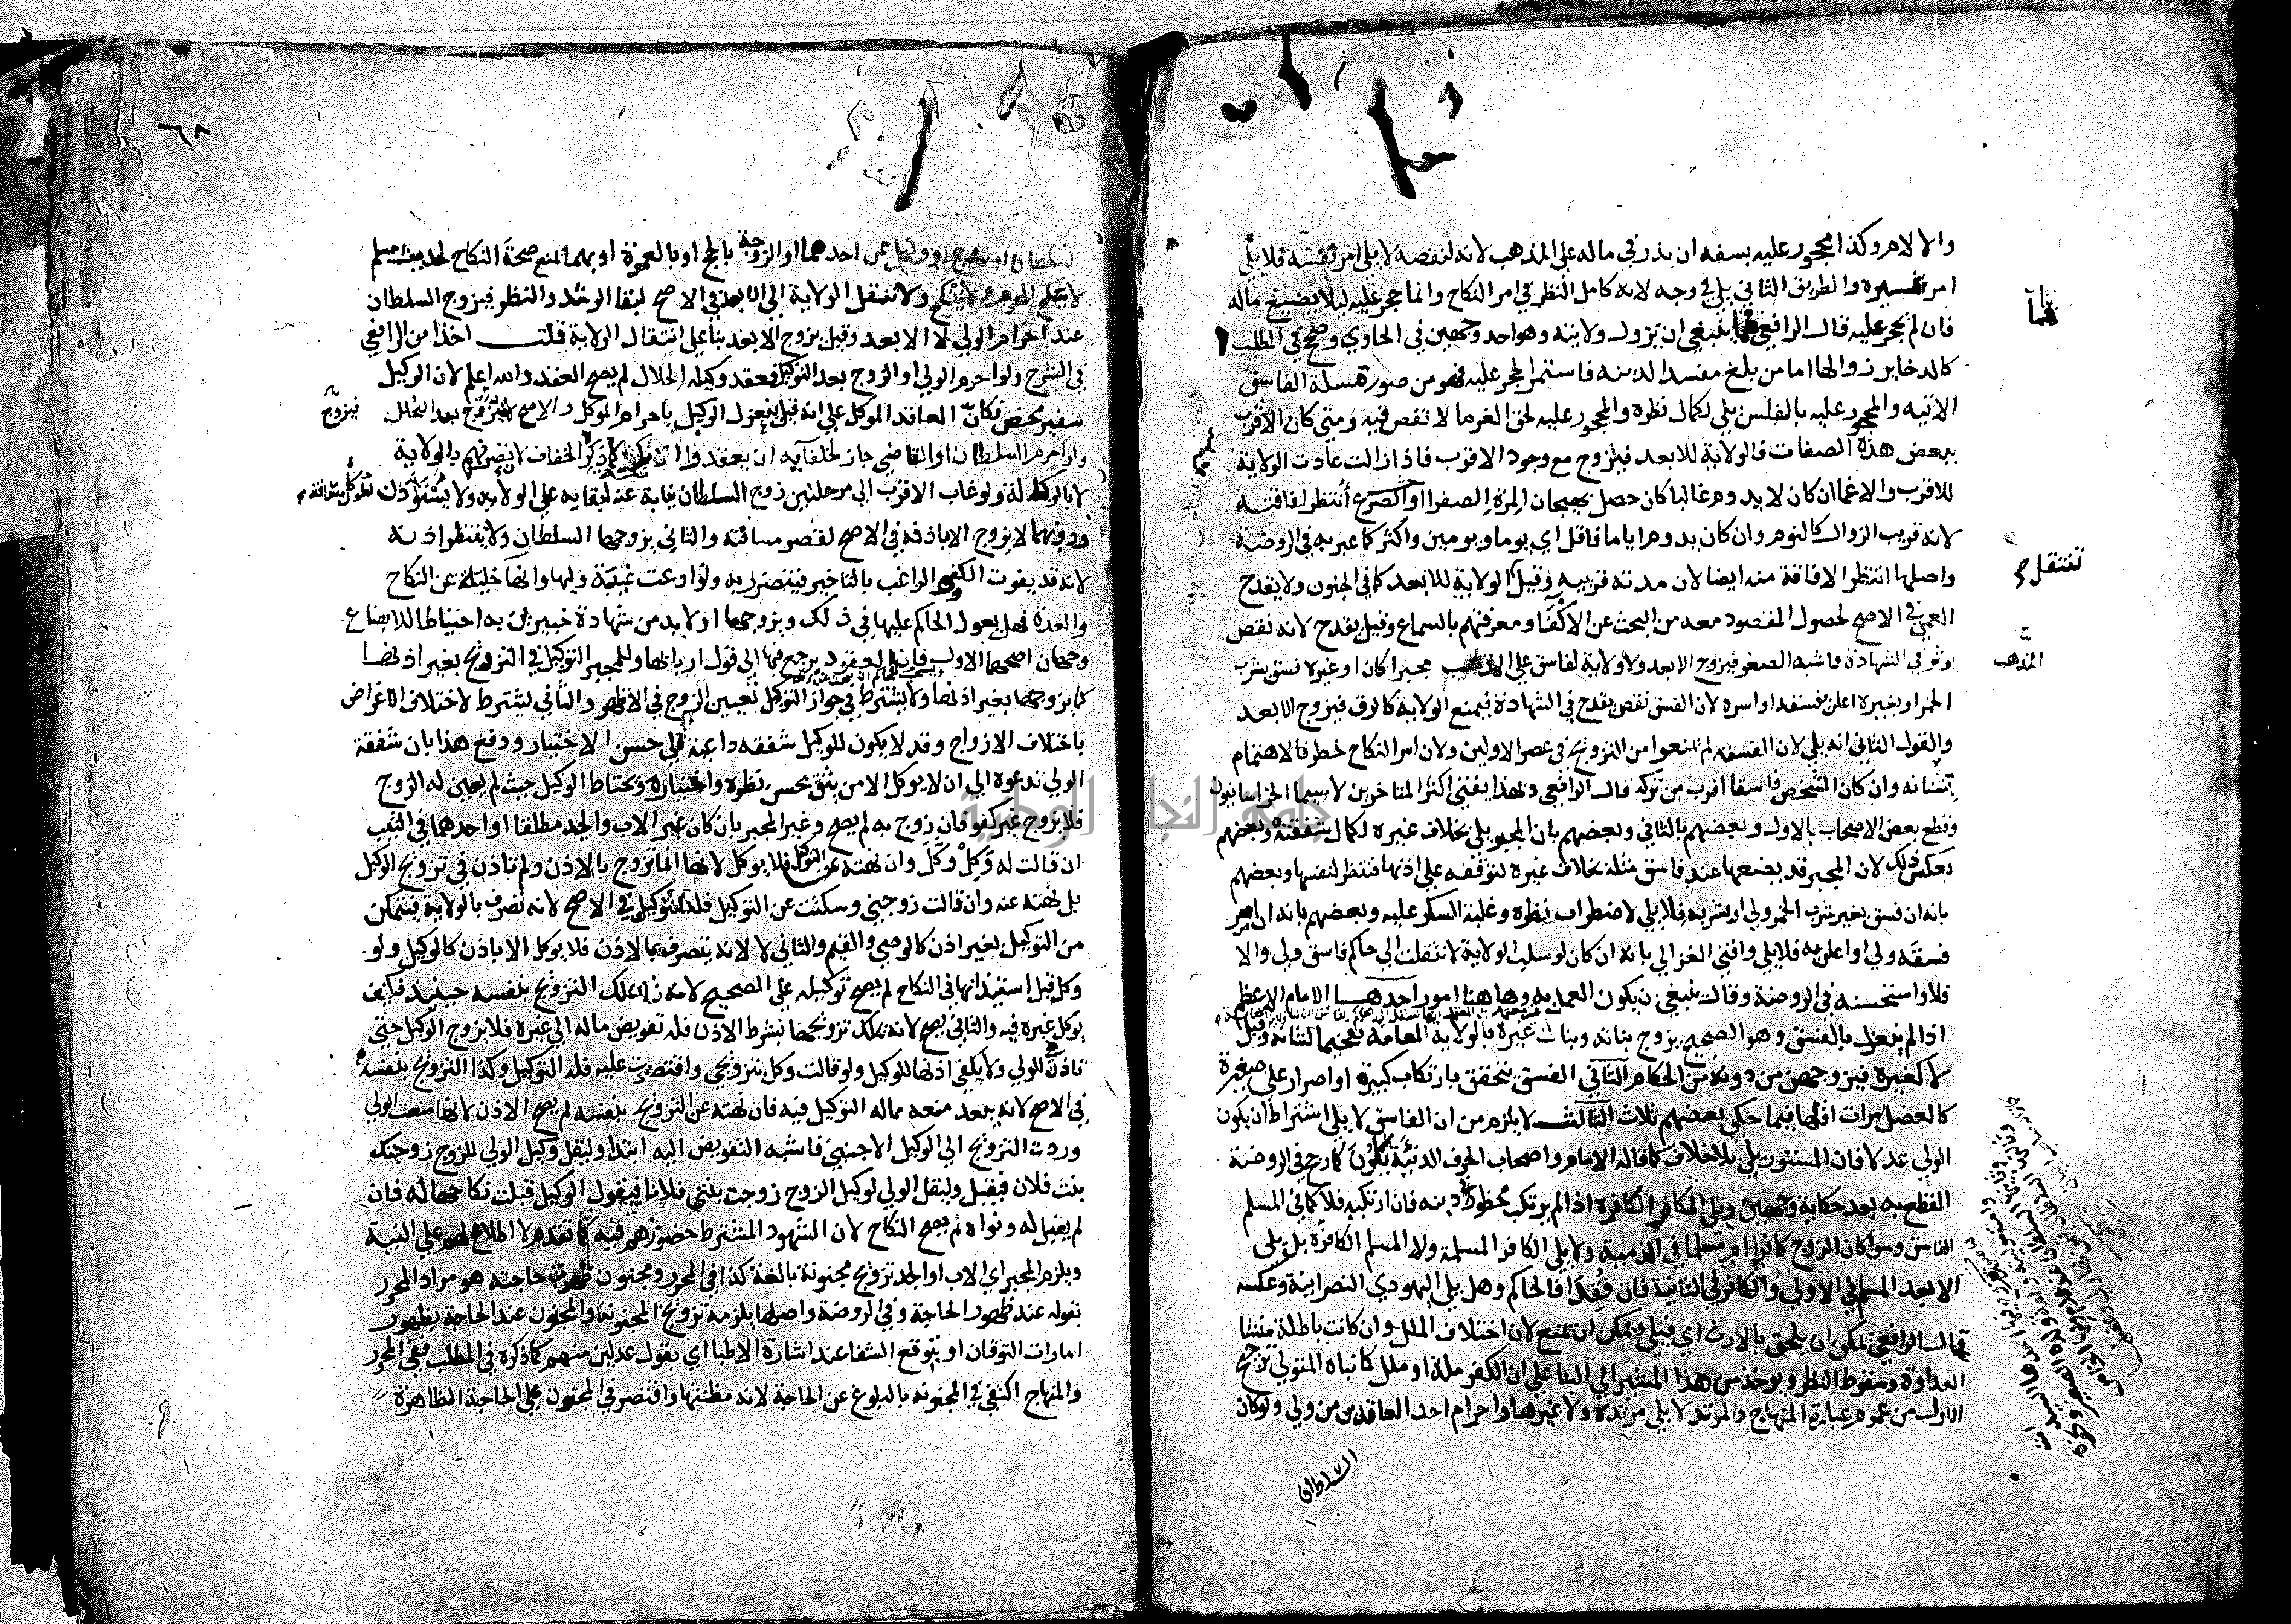 والالام وكذا محجور عليه بسفه ان بذر في ماله علي المذهب لانه لنقصه لا يلي امر نفسه فلا يلي
امر غيره والطريق الثاني يلي في وجه لانه كامل النظر في امر النكاح وانما حجر عليه ليلا يضيع ماله
فان لم يحجر عليه قال الرافعي فما ينبغي ان تزول ولايته وهو احد وجهين في الحاوي وصح في المطلب
كالدخاير زوالها اما من بلغ مفسدا لدينه فاستمر الحجر عليه فهو من صورة مسلة الفاسق
الاتيه والمحجور عليه بالفلس يلي لكمال نظره والحجر عليه لحق الغرما لا نقص فيه ومتي كان الاقرب
ببعض هذه الصفات فالولاية للابعد فيزوج مع وجود الاقرب فاذا زالت عادت الولاية
للاقرب والاغما ان كان لا يدوم غالبا كان حصل بهيجان المرة الصفرا او الصرع انتظر افاقته
لانه قريب الزوال كالنوم وان كان يدوم اياما فاقل اي يوما ويومين واكثر كما عبر به في الروضة
واصلها انتظر الافاقة منه ايضا لان مدته قريبه وقيل الولاية للابعد كما في الجنون ولا يقدح
العمي في الاصح لحصول المقصود معه من البحث عن الاكفا ومعرفتهم بالسماع وقيل يقدح لانه نقص
يوثر في الشهادة فاشبه الصغر فيزوج الابعد ولا ولاية لفاسق علي المذهب مجبرا كان او غيره فسق بشرب
الخمر او بغيره اعلن بفسقه او اسره لان الفسق نقص يقدح في الشهادة فيمنع الولاية كالرق فيزوج الابعد
والقول الثاني انه يلي لان الفسقه لم يمنعوا من التزويج في عصر الاولين ولان امر النكاح خطر فالاهتمام
بشانه وان كان الشخص فاسقا اقرب من تركه قال الرافعي وبهذا يفتي اكثر المتاخرين لا سيما الخراسانيون
وقطع بعض الاصحاب بالاول وبعضهم بالثاني وبعضهم بان المجبر يلي بخلاف غيره لكمال شفقته وبعضهم
بعكس ذلك لان المجبر قد يضعها عند فاسق مثله بخلاف غيره لتوقفه علي اذنها فتنظر لنفسها وبعضهم
بانه ان فسق بغير شرب الخمر ولي او بشربه فلا يلي لاضطراب نظره وغلبة السكر عليه وبعضهم بانه ان اسر
فسقه ولي او اعلن به فلا يلي وافتي الغزالي بانه ان كان لو سلبت الولاية لانتقلت الي حاكم فاسق ولي والا
فلا واستحسنه في الروضة وقال ينبغي ان يكون العمل به وها هنا امور احدها الامام الاعظم
اذا لم ينعزل بالفسق وهو الصحيح يزوج بناته وبنات غيره بالولاية العامة تفخيما لشانه وقيل
لا كغيره فيزوجهن من دونه من الحكام الثاني الفسق يتحقق بارتكاب كبيرة او اصرار علي صغيرة
كالعضل مرات اقلها فيما حكي بعضهم ثلاث الثالث لا يلزم من ان الفاسق لا يلي اشتراط ان يكون
الولي عدلا فان المستور يلي بلا خلاف كما قاله الامام واصحاب الحرف الدنيية يلون كما رجح في الروضة
القطع به بعد حكاية وجهين ويلي الكافر الكافرة اذا لم يرتكب محظور دينه فان ارتكبه فلا كما في المسلم
الفاسق وسوا كان الزوج كافرا ام مسلما في الذمية ولا يلي الكافر المسلمة ولا المسلم الكافرة بل يلي
الابعد المسلم في الاولي والكافر في الثانية فان فقد فالحاكم وهل يلي اليهودي النصرانية وعكسه
قال الرافعي يمكن ان يلحق بالارث اي فيلي ويمكن ان يمنع لان اختلاف الملل وان كانت باطلة منشا
العداوة وسقوط النظر ويوخذ من هذا المشير الي البنا علي ان الكفر ملة او ملل كما نباه المتولي ترجيح
الاول من عموم عبارة المنهاج والمرتد لا يلي مرتدة ولا غيرها واحرام احد العاقدين من ولي ولو كان
السلطان
تنتقل
المذهب
او زوج او وكيل عن احدهما او الزوجة بالحج او بالعمرة او بهما يمنع صحة النكاح لحديث مسلم
لا ينكح المحرم ولا ينكح ولا تنتقل الولاية الي الابعد في الاصح لبقا الرشد والنظر فيزوج السلطان
عند احرام الولي لا الابعد وقيل يزوج الابعد بنا علي انتقال الولاية قلت اخذا من الرافعي
في الشرح ولو احرم الولي او الزوج بعد التوكيل فعقد وكيله الحلال لم يصح العقد والله اعلم لان الوكيل
سفير محض فكان العاقد الموكل علي انه قيل ينعزل الوكيل باحرام الموكل والاصح لا فيزوج بعد التحلل
ولو احرم السلطان او القاضي جاز لخلفايه ان يعقدوا الانكحة كما ذكره الخفاف لان تصرفهم بالولاية
لا بالوكالة ولو غاب الاقرب الي مرحلتين زوج السلطان نيابة عنه لبقايه علي الولاية
ودونهما لا يزوج الا باذنه في الاصح لقصر مسافته والثاني يزوجها السلطان ولا ينتظر اذنه
لانه قد يفوت الكفو الراغب بالتاخير فيتضرر به ولو ادعت غيبة وليها وانها خلية عن النكاح
والعدة فهل يعول الحاكم عليها في ذلك ويزوجها او لا بد من شهادة خبيرين به احتياطا للابضاع
وجهان اصحهما الاول فان العقود يرجع فيها الي قول اربابها وللمجبر التوكيل في التزويج بغير اذنها
كما يزوجها بغير اذنها ولا يشترط في جواز التوكيل تعيين الزوج في الاظهر والثاني يشترط لاختلاف الاغراض
باختلاف الازواج وقد لا يكون للوكيل شفقه داعية الي حسن الاختيار ودفع هذا بان شفقة
الولي تدعوه الي ان لا يوكل الا من يثق بحسن نظره واختياره ويحتاط الوكيل حيث لم يعين له الزوج
فلا يزوج غير كفو فان زوج به لم يصح وغير المجبر بان كان غير الاب والجد مطلقا او احدهما في الثيب
ان قالت له وكل وكل وان نهته عن التوكيل فلا يوكل لانها انما تزوج بالاذن ولم تاذن في تزويج الوكيل
بل نهته عنه وان قالت زوجني وسكتت عن التوكيل فله التوكيل في الاصح لانه تصرف بالولاية فيتمكن
من التوكيل بغير اذن كالوصي والقيم والثاني لا لانه يتصرف بالاذن فلا يوكل الا باذن كالوكيل ولو
وكل قبل استيذانها في النكاح لم يصح توكيله علي الصحيح لانه لا يملك التزويج بنفسه حينيذ فكيف
يوكل غيره فيه والثاني يصح لانه يملك تزويجها بشرط الاذن فله تفويض ماله الي غيره فلا يزوج الوكيل حتي
تاذن للولي ولا يكفي اذنها للوكيل ولو قالت وكل بتزويجي واقتصرت عليه فله التوكيل وكذا التزويج بنفسه
في الاصح لانه يبعد منعه مما له التوكيل فيه فان نهته عن التزويج بنفسه لم يصح الاذن لانها منعت الولي
وردت التزويج الي الوكيل الاجنبي فاشبه التفويض اليه ابتدا وليقل وكيل الولي للزوج زوجتك
بنت فلان فيقبل وليقل الولي لوكيل الزوج زوجت بنتي فلانا فيقول الوكيل قبلت نكاحها له فان
لم يقبل له ونواه لم يصح النكاح لان الشهود المشترط حضورهم فيه كما تقدم لا اطلاع لهم علي النية
ويلزم المجبر اي الاب او الجد تزويج مجنونة بالغة كذا في المحرر ومجنون ظهرت حاجته هو مراد المحرر
بقوله عند ظهور الحاجة وفي الروضة واصلها يلزمه تزويج المجنونة والمجنون عند الحاجة بظهور
امارات التوقان او بتوقع الشفا عند اشارة الاطبا اي بقول عدلين منهم كما ذكره في المطلب ففي المحرر
والمنهاج اكتفي في المجنونه بالبلوغ عن الحاجة لانه مظنتها واقتصر في المجنون علي الحاجة الظاهرة
فيزوج
٦٨
جامعة النجاح الوطنية